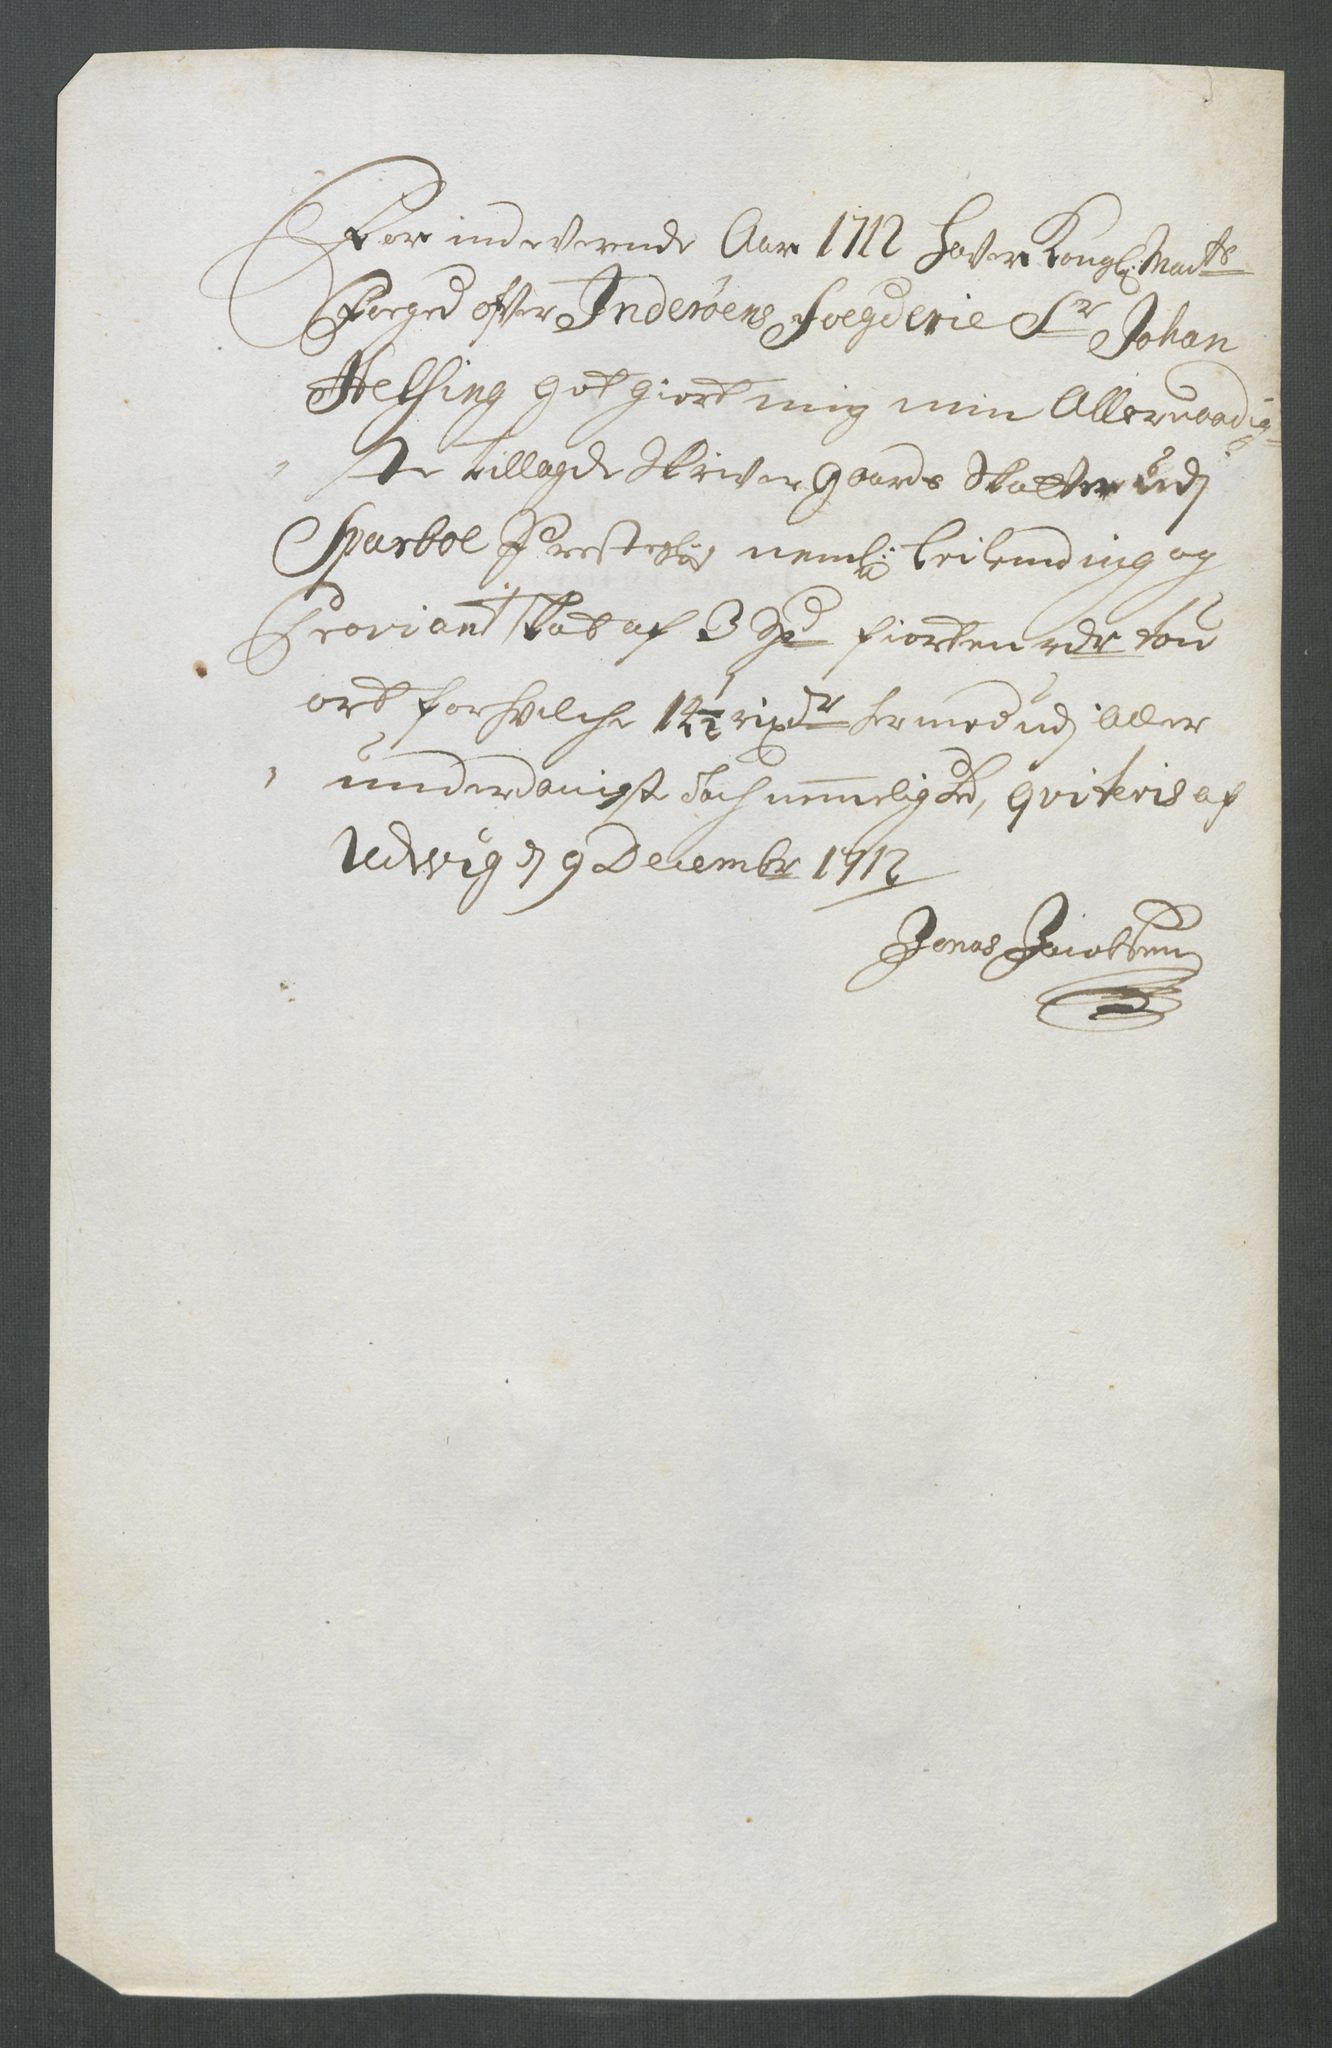 For indeverende Aar 1712 haver Kongl: Mayts
Foeged ofver Inderöens Foegderie Sr Johan
Helsing got giort mig min Allernaadig-
ste tillagde Skriver Gaards Skatter udj
Sparboe Prestegield neml: Leilending og
Proviant skat af 3 Spd fiorten rdr tou
ort for hvilche 14½ rixdr hermed udj aller
underdanigst tachnemmelighed, qviteris af
Udvvig dj 9 Decembr 1712
Jonas Jacobsen